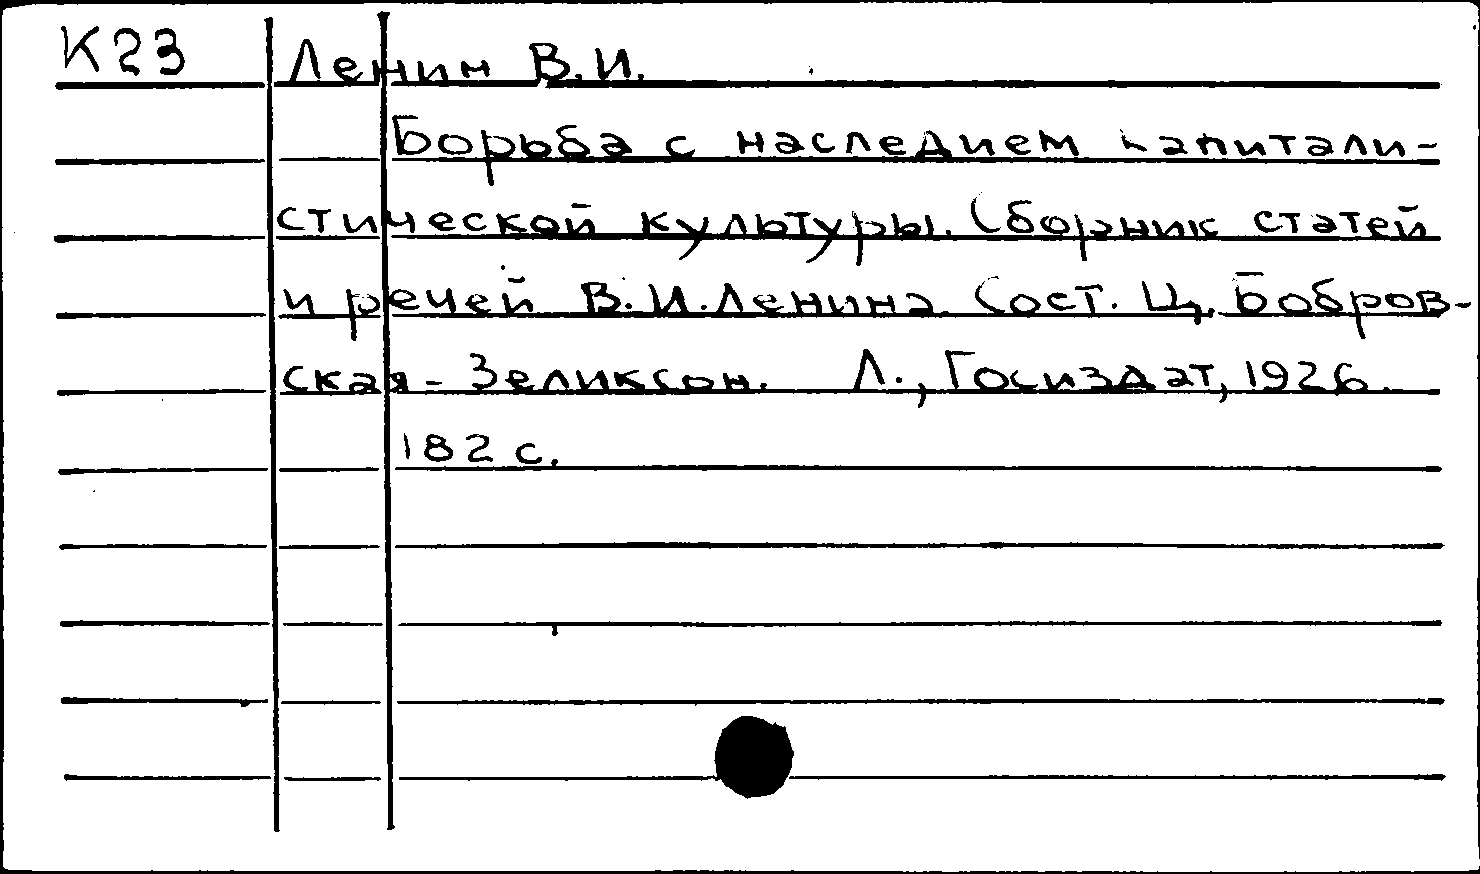 К23 Ленин В.И.
Борьба с наследием капитали-
стической культуры. Сборник статей
и речей В.И.Ленина. Сост. Ц. Бобров-
ская-Зеликсон. Л., Госиздат, 1926.
182 с.